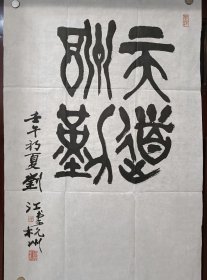 天道
酬勤
壬午初夏劉
江書杭州